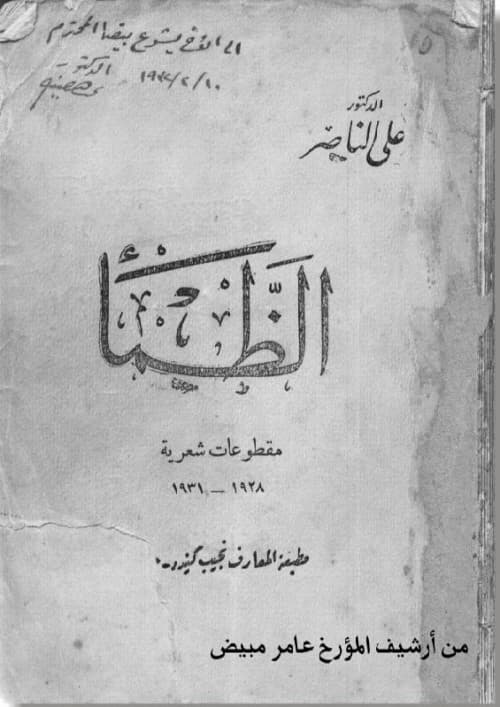 الى الأخ يشوع بيضا المحترم
الدكتور
١٩٣٤/٢/١٠
الدكتور
علي الناصر
الظَّمَأ
مقطوعات شعرية
١٩٢٨ - ١٩٣١
مطبعة المعارف نجيب كنيدر
من أرشيف المؤرخ عامر مبيض